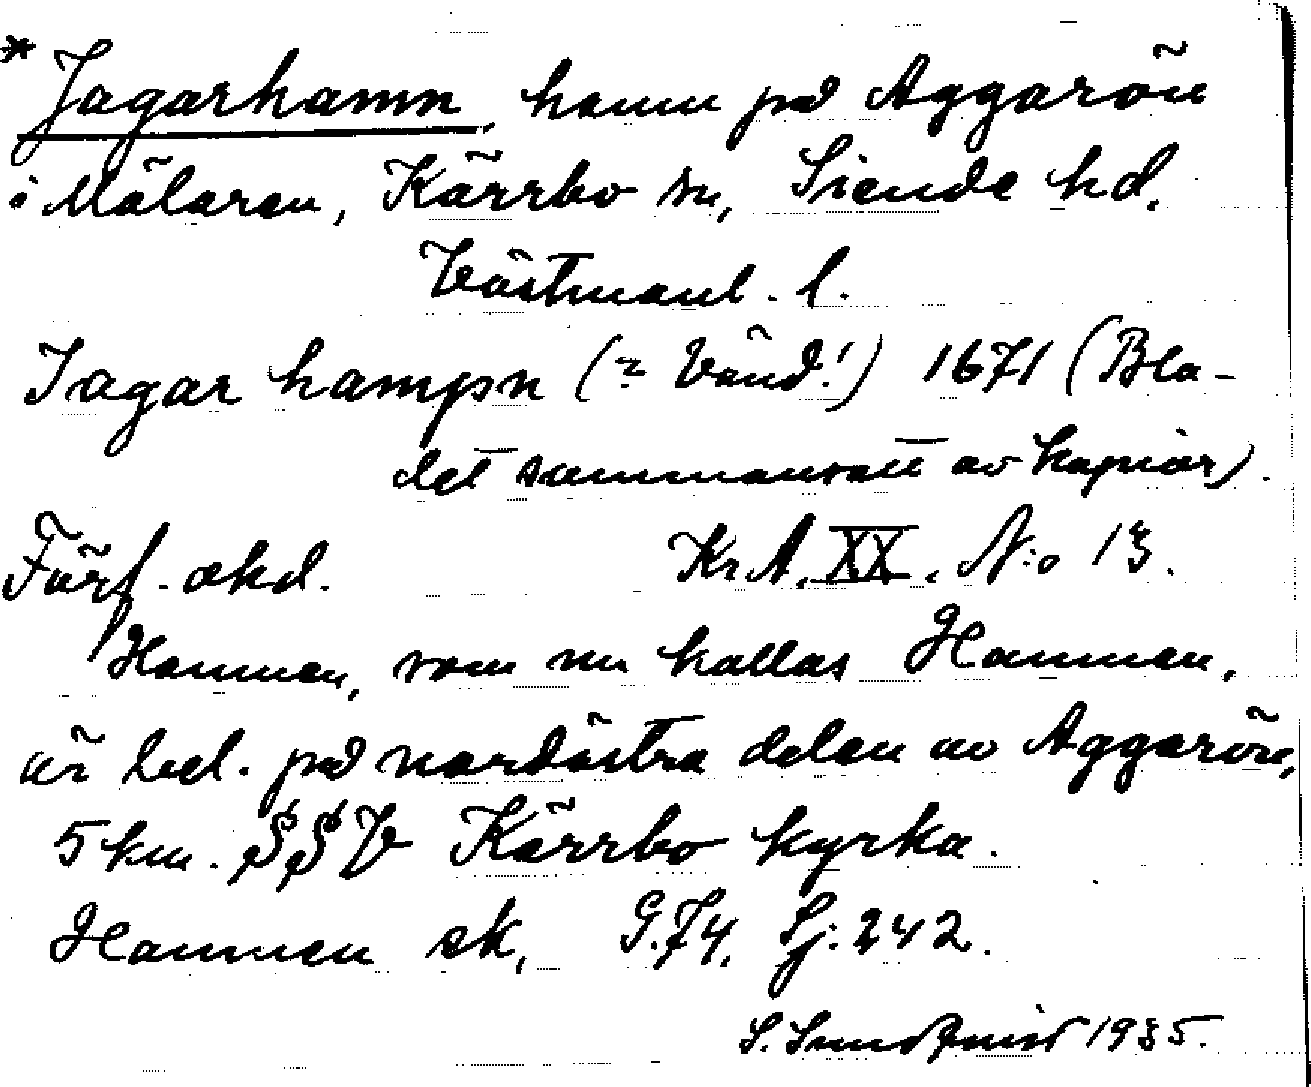 * Jagarhamn, hamn på Aggarön
i Mälaren, Kärrbo sn, Siende hd.
Västmanl. l.
Jagar hampn (= Vänd!) 1671 (Bla-
det sammansatt av kopior).
Förf. okd. KrA. XX. N:o 13.
Hamnen, som nu kallas Hamnen,
är bel. på nordöstra delen av Aggarön,
5 km. SSV Kärrbo kyrka.
Hamnen ek, G.74. Sj:242.
S. Sundquist 1935.